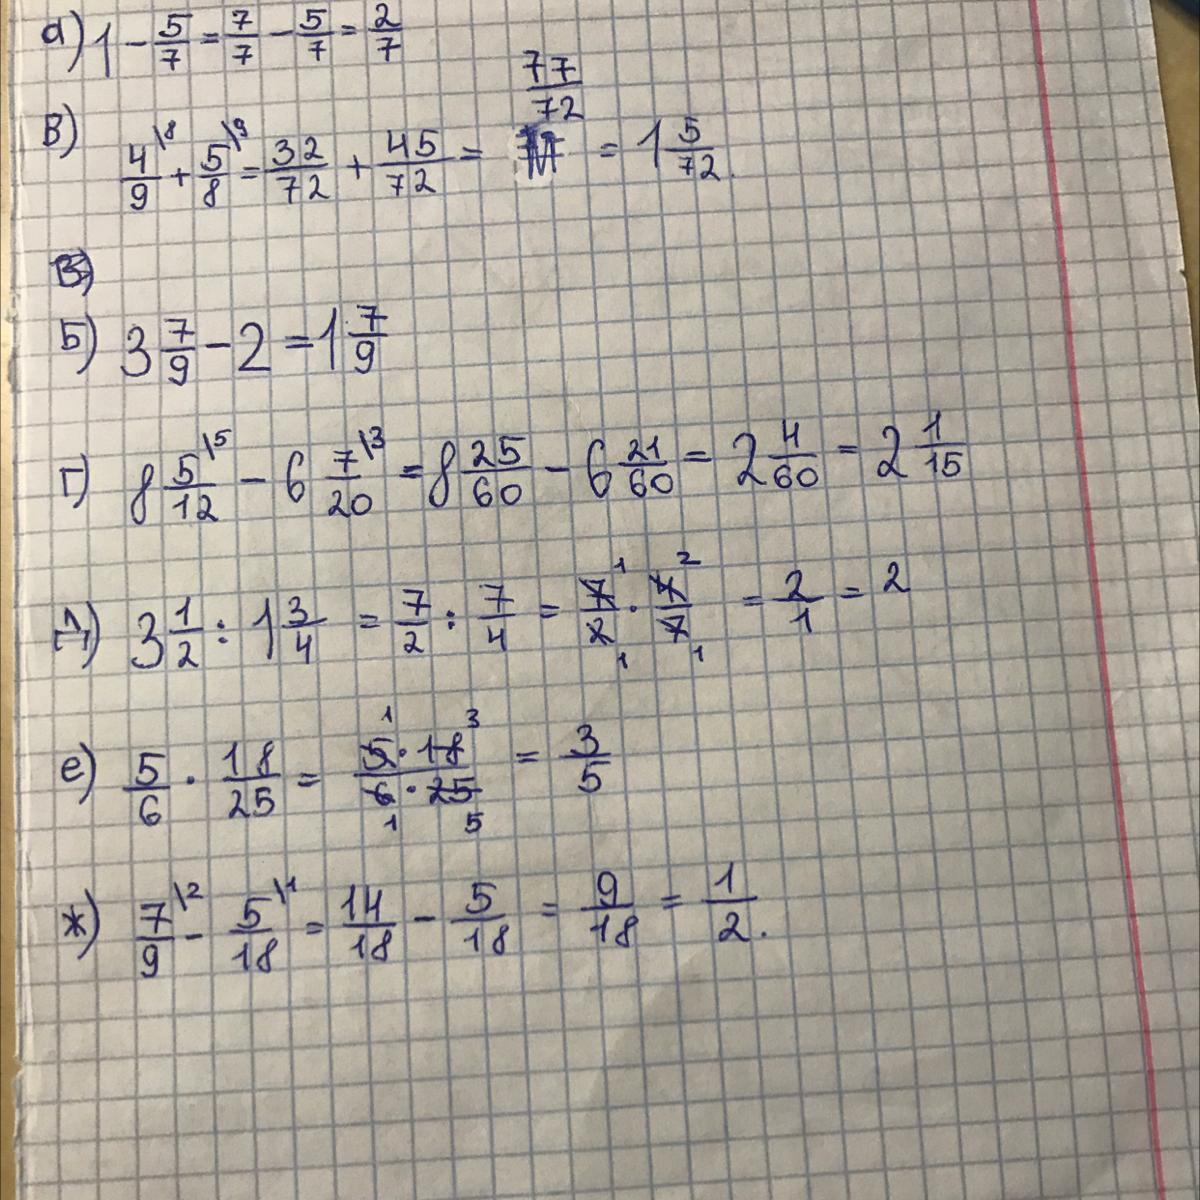 а) 1 - 5/7 = 7/7 - 5/7 = 2/7
в) 4/9\8 + 5/8\9 = 32/72 + 45/72 = 77/72 = 1 5/72.
Б) 3 7/9 - 2 = 1 7/9
Г) 8 5/12\5 - 6 7/20\3 = 8 25/60 - 6 21/60 = 2 4/60 = 2 1/15
Д) 3 1/2 : 1 3/4 = 7/2 : 7/4 = 7/2 · 4/7 = 2/1 = 2
е) 5/6 · 18/25 = 5·18/6·25 = 3/5
ж) 7/9\2 - 5/18\1 = 14/18 - 5/18 = 9/18 = 1/2.